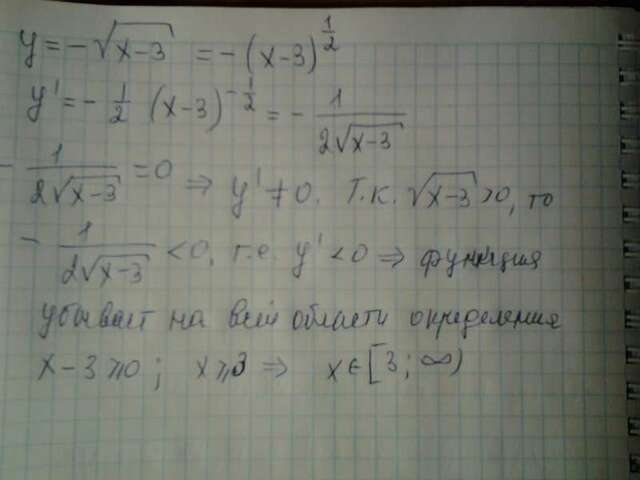 y = -√(x-3) = -(x-3)^(1/2)
y' = -1/2 (x-3)^(-1/2) = - 1/(2√(x-3))
- 1/(2√(x-3)) = 0 ⇒ y' ≠ 0. Т.к. √(x-3) > 0, то
- 1/(2√(x-3)) < 0, т.е. y' < 0 ⇒ функция
убывает на всей области определения
x - 3 ⩾ 0; x ⩾ 3 ⇒ x ∈ [3; ∞)